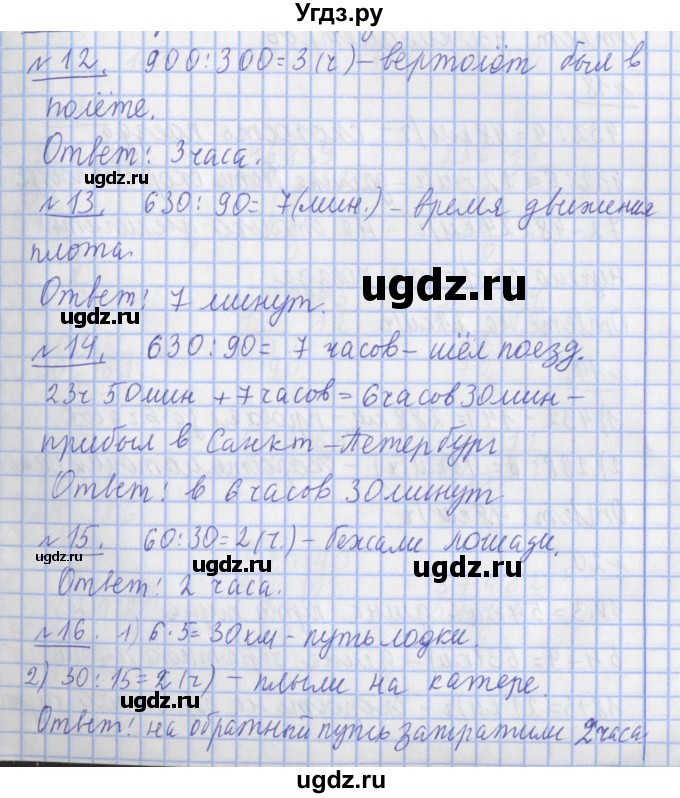 Угдз.ру
№ 12. 900:300=3(ч)-вертолёт был в
полёте.
Ответ: 3 часа.
gdz.ru
№ 13. 630:90=7(мин.)-время движения
плота.
ugdz.ru
Ответ: 7 минут.
ugdz.ru
№ 14. 630:90= 7 часов-шёл поезд.
23ч 50мин +7 часов=6часов30мин-
прибыл в Санкт-Петербург
Ответ: в 6 часов 30 минут
№ 15. 60:30=2(ч.)-бежали лошади.
ugdz.ru
ugdz.ru
Ответ: 2 часа.
№ 16. 1) 6·5=30км-путь лодки.
ugdz.ru
2) 30:15=2(ч) - плыли на катере.
Ответ: на обратный путь затратили 2 часа.
ugdz.ru
ugdz.ru